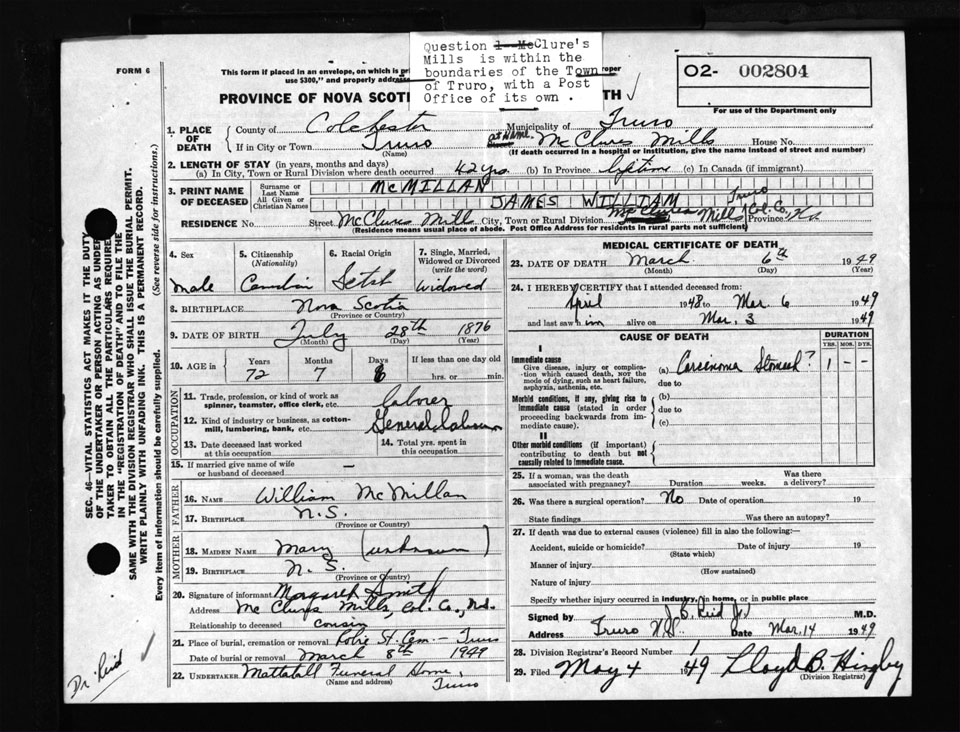 Question 1--McClure's
Mills is within the
boundaries of the Town
of Truro, with a Post
Office of its own .
FORM 6
This form if placed in an envelope, on which is pr
oper
use $300," and properly address
02- 002804
PROVINCE OF NOVA SCOTI
TH ✓
For use of the Department only
1. PLACE OF DEATH
County of Colchester Municipality of Truro
If in City or Town Truro (Name) McClures Mills House No.
(If death occurred in a hospital or institution, give the name instead of street and number)
2. LENGTH OF STAY (in years, months and days)
(a) In City, Town or Rural Division where death occurred 42 yrs. (b) In Province Lifetime (c) In Canada (if immigrant)
3. PRINT NAME OF DECEASED
Surname or Last Name McMILLAN
All Given or Christian Names JAMES WILLIAM
RESIDENCE No. Street McClures Mills City, Town or Rural Division McClures Mills Truro Col. Co., Province N.S.
(Residence means usual place of abode. Post Office Address for residents in rural parts not sufficient)
4. Sex Male
5. Citizenship (Nationality) Canadian
6. Racial Origin Scotch
7. Single, Married, Widowed or Divorced (write the word) Widowed
8. BIRTHPLACE Nova Scotia
(Province or Country)
9. DATE OF BIRTH July 28th 1876
(Month) (Day) (Year)
10. AGE in Years 72 Months 7 Days If less than one day old hrs. or min.
OCCUPATION
11. Trade, profession, or kind of work as spinner, teamster, office clerk, etc. Laborer
12. Kind of industry or business, as cotton-mill, lumbering, bank, etc. General Labour
13. Date deceased last worked at this occupation
14. Total yrs. spent in this occupation
15. If married give name of wife or husband of deceased —
FATHER
16. Name William McMillan
17. BIRTHPLACE N.S.
(Province or Country)
MOTHER
18. MAIDEN NAME Mary (unknown)
19. BIRTHPLACE N.S.
(Province or Country)
20. Signature of informant Margaret Smith
Address McClures Mills, Col. Co., N.S.
Relationship to deceased cousin
21. Place of burial, cremation or removal Robie St. Cem — Truro
Date of burial or removal March 8th 1949
22. UNDERTAKER Mattatall Funeral Home, Truro
(Name and address)
MEDICAL CERTIFICATE OF DEATH
23. DATE OF DEATH March 6th 1949
(Month) (Day) (Year)
24. I HEREBY CERTIFY that I attended deceased from:
April 1948 to Mar. 6 1949
and last saw him alive on Mar. 3 1949
CAUSE OF DEATH
DURATION
YRS. MOS. DYS.
I
Immediate cause
Give disease, injury or complication which caused death, NOT the mode of dying, such as heart failure, asphyxia, asthenia, etc.
(a) Carcinoma Stomach? 1 – –
due to
Morbid conditions, if any, giving rise to immediate cause (stated in order proceeding backwards from immediate cause).
(b)
due to
(c)
II
Other morbid conditions (if important) contributing to death but not causally related to immediate cause.
25. If a woman, was the death associated with pregnancy? Duration weeks. Was there a delivery?
26. Was there a surgical operation? No Date of operation 19
State findings Was there an autopsy?
27. If death was due to external causes (violence) fill in also the following:—
Accident, suicide or homicide? Date of injury 19
(State which)
Manner of injury
(How sustained)
Nature of injury
Specify whether injury occurred in industry, in home, or in public place
Signed by J. B. Reid Jr. M.D.
Address Truro N.S. Date Mar. 14 1949
28. Division Registrar's Record Number 1
29. Filed May 4 1949 Lloyd B. Hingley
(Division Registrar)
SEC. 46—VITAL STATISTICS ACT MAKES IT THE DUTY
OF THE UNDERTAKER OR PERSON ACTING AS UNDER
TAKER TO OBTAIN ALL THE PARTICULARS REQUIRED
IN THE "REGISTRATION OF DEATH" AND TO FILE THE
SAME WITH THE DIVISION REGISTRAR WHO SHALL ISSUE THE BURIAL PERMIT.
WRITE PLAINLY WITH UNFADING INK. THIS IS A PERMANENT RECORD.
Every item of information should be carefully supplied. (See reverse side for instructions.)
Dr. Reid